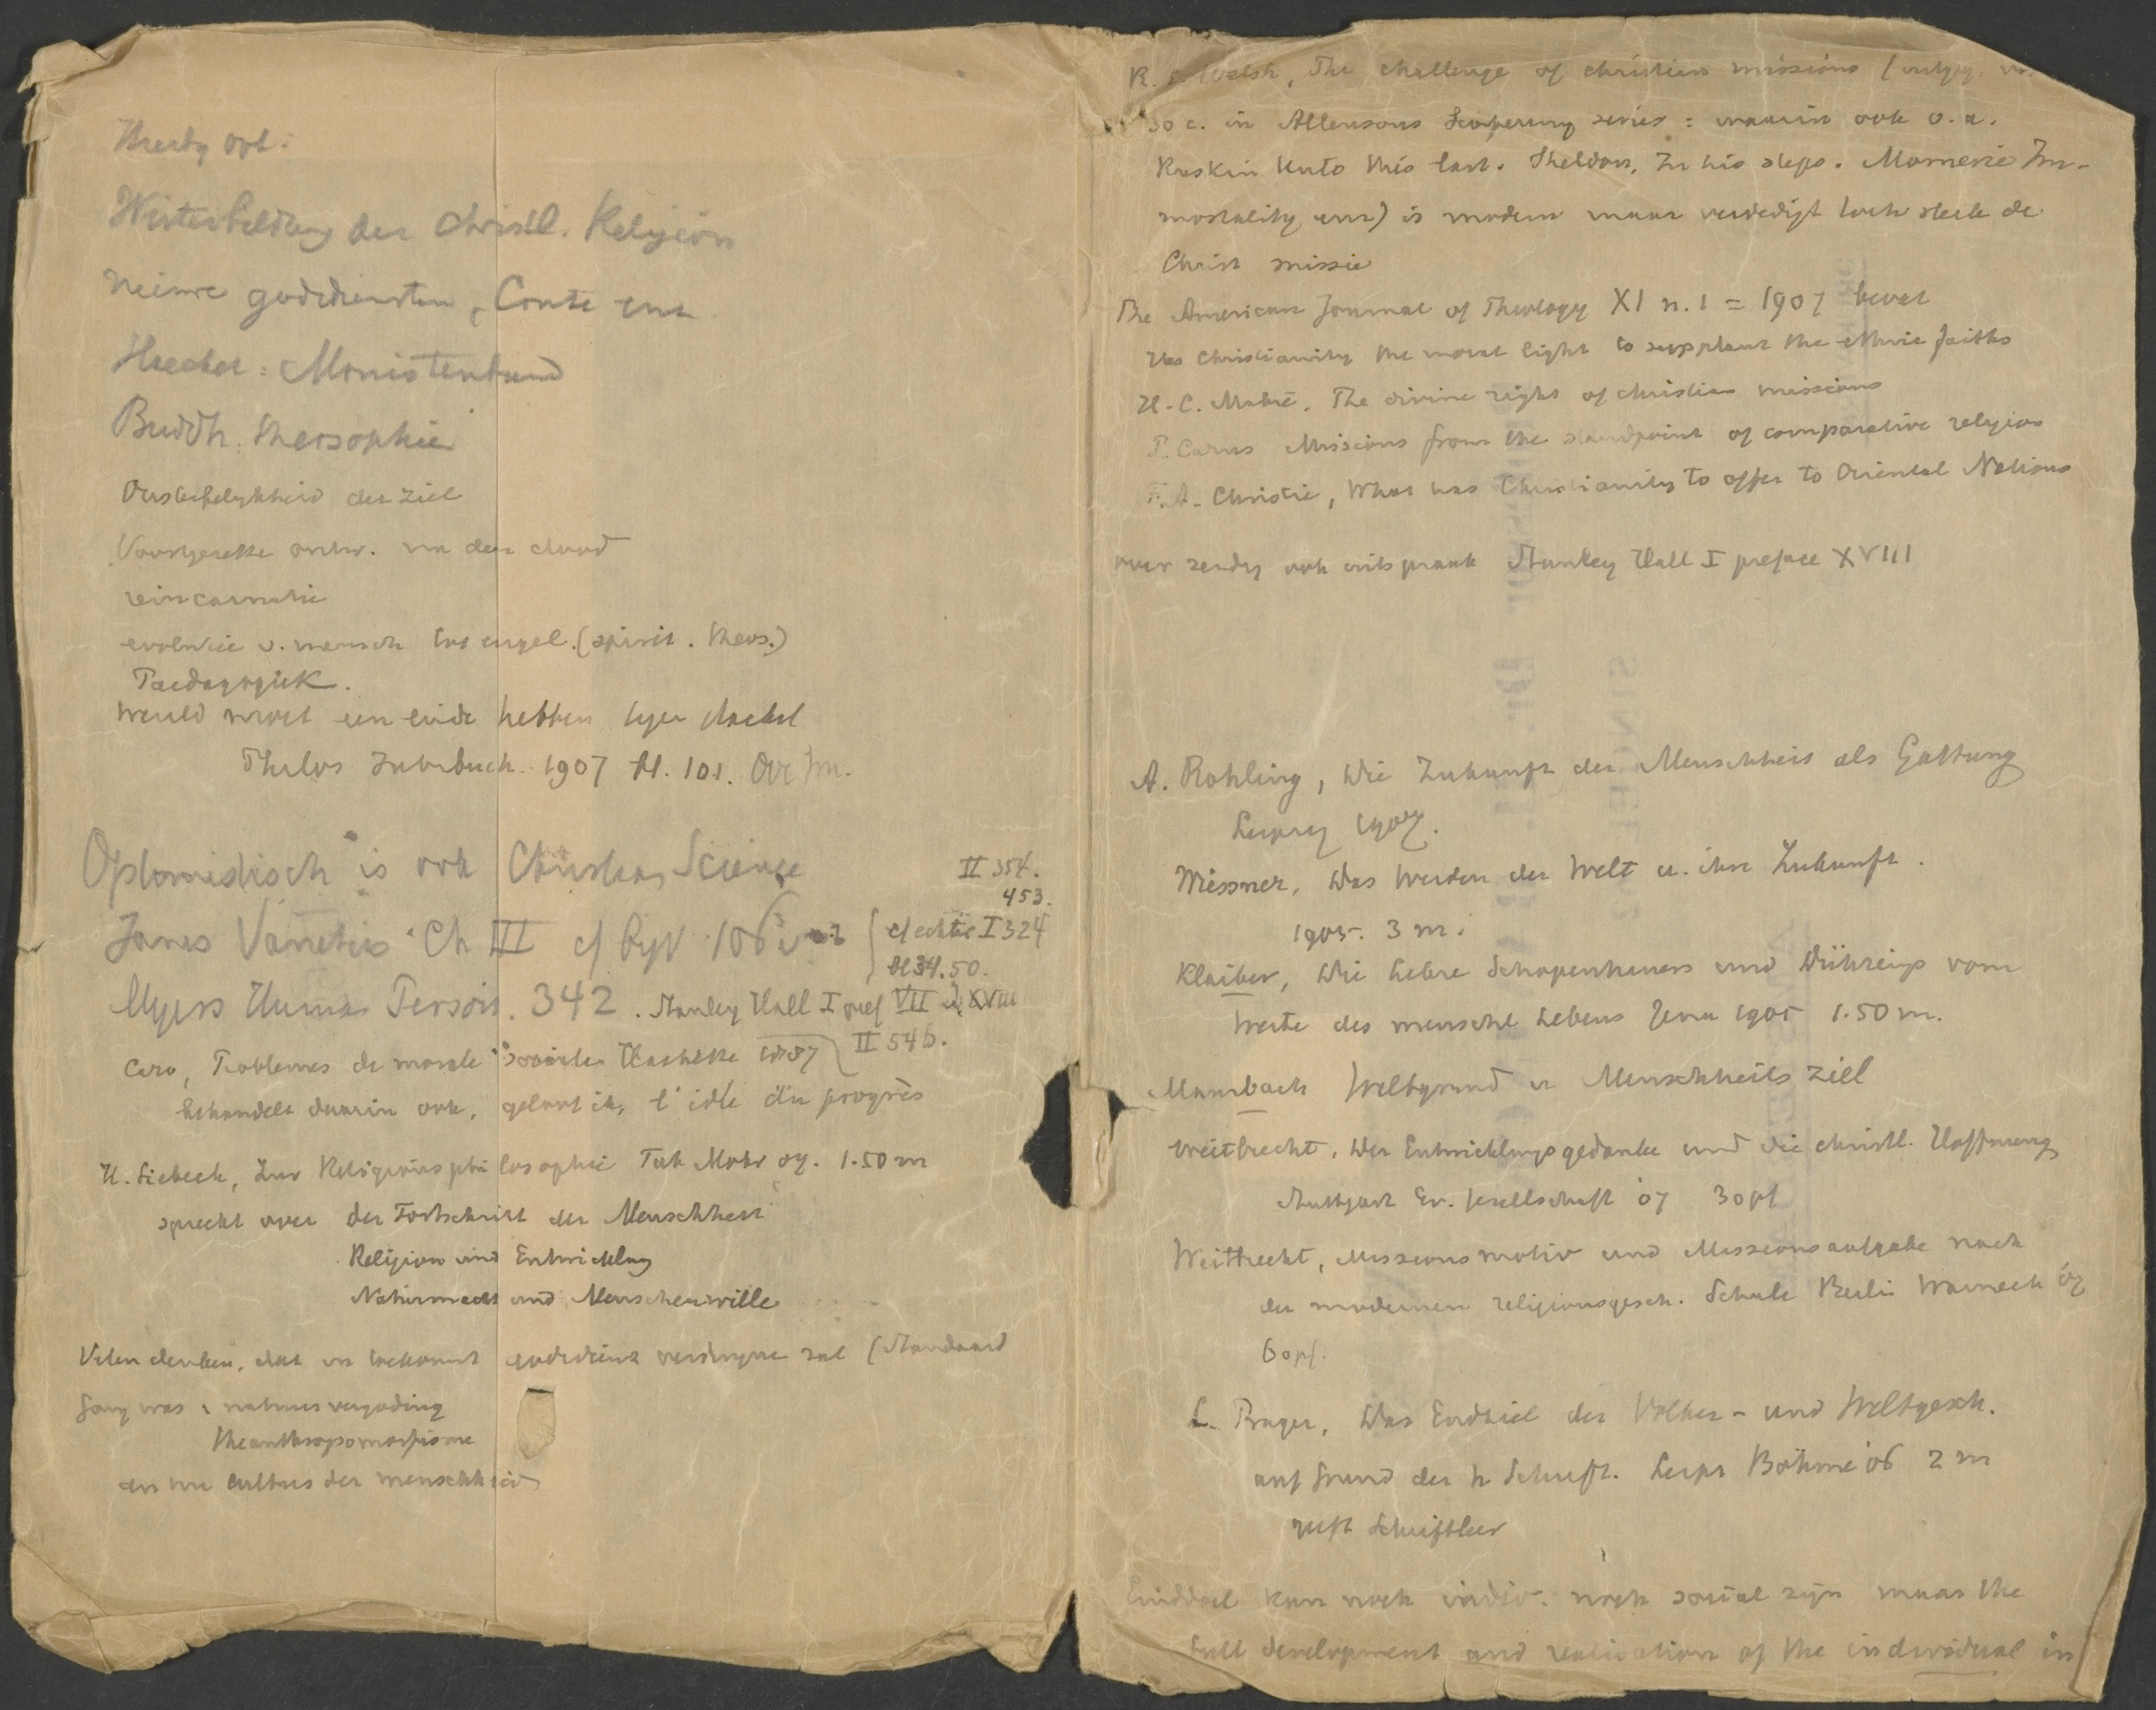 Weiterbildung der christl. Religion
nieuwe godsdiensten, Comte enz.
Haeckel: Monistenbund
Buddh. theosophie
Onsterfelykheid der ziel
Voortgezette ontw. na den dood
reincarnatie
evolutie v. mensch tot engel. (spirit. theos.)
Paedagogiek.
Wereld moet een einde hebben, tegen Haeckel
Philos Jahrbuch. 1907 bl. 101.
Optimistisch is ook Christian Science
James Varieties Ch III cf
II 354.
453.
I 324
bl 34. 50.
Myers Human Person. 342. Stanley Hall I pref VII XVIII
II 546.
Caro, Problemes de morale sociale Hachette
behandelt daarin ook, geloof ik, l'idée du progrès
H. Siebeck, Zur Religionsphilosophie Tub Mohr 07. 1.50 m
spreekt over der Fortschritt der Menschheit
Religion und Entwicklung
Naturmacht und Menschenwille
Velen denken, dat in toekomst godsdienst verdwynen zal (Standaard
Gang was: natuurvergoding
theanthropomorfisme
en nu cultus der menschheid
R. Welsh, The challenge of christian missions
30 c. in Allensons Sixpenny series: waarin ook o.a.
Ruskin Unto this last. Sheldon, In his steps. Momerie Im-
mortality enz) is modern maar verdedigt toch sterk de
Christ missie
The American Journal of Theology XI n. 1 = 1907 bevat
Has Christianity the moral right to supplant the ethnic faiths
H. C. Mabie, The divine right of christian missions
P. Carus Missions from the standpoint of comparative religion
F. A. Christie, What has Christianity to offer to Oriental Nations
over zending ook uitspraak Stanley Hall I preface XVIII
A. Rohling, Die Zukunft der Menschheit als Gattung
Leipzig 1907.
Meissner, Das Werden der Welt u. ihre Zukunft.
1905. 3 m.
Klaiber, Die Lehre Schopenhauers und Dührings vom
Werte des menschl Lebens Jena 1905 1.50 m.
Mausbach Weltgrund u Menschheitsziel
Weitbrecht, Der Entwicklungsgedanke und die christl. Hoffnung
Stuttgart Ev. Gesellschaft 07 30 pf
Weitbrecht, Missionsmotiv und Missionsaufgabe nach
der modernen religionsgesch. Schule Berlin Warneck 07
60 pf.
L. Prager, Das Endziel der Völker- und Weltgesch.
auf Grund der h Schrift. Leipz Böhme 06 2 m
Einddoel kan noch indiv. noch sociaal zijn maar the
full development and realisation of the individual in